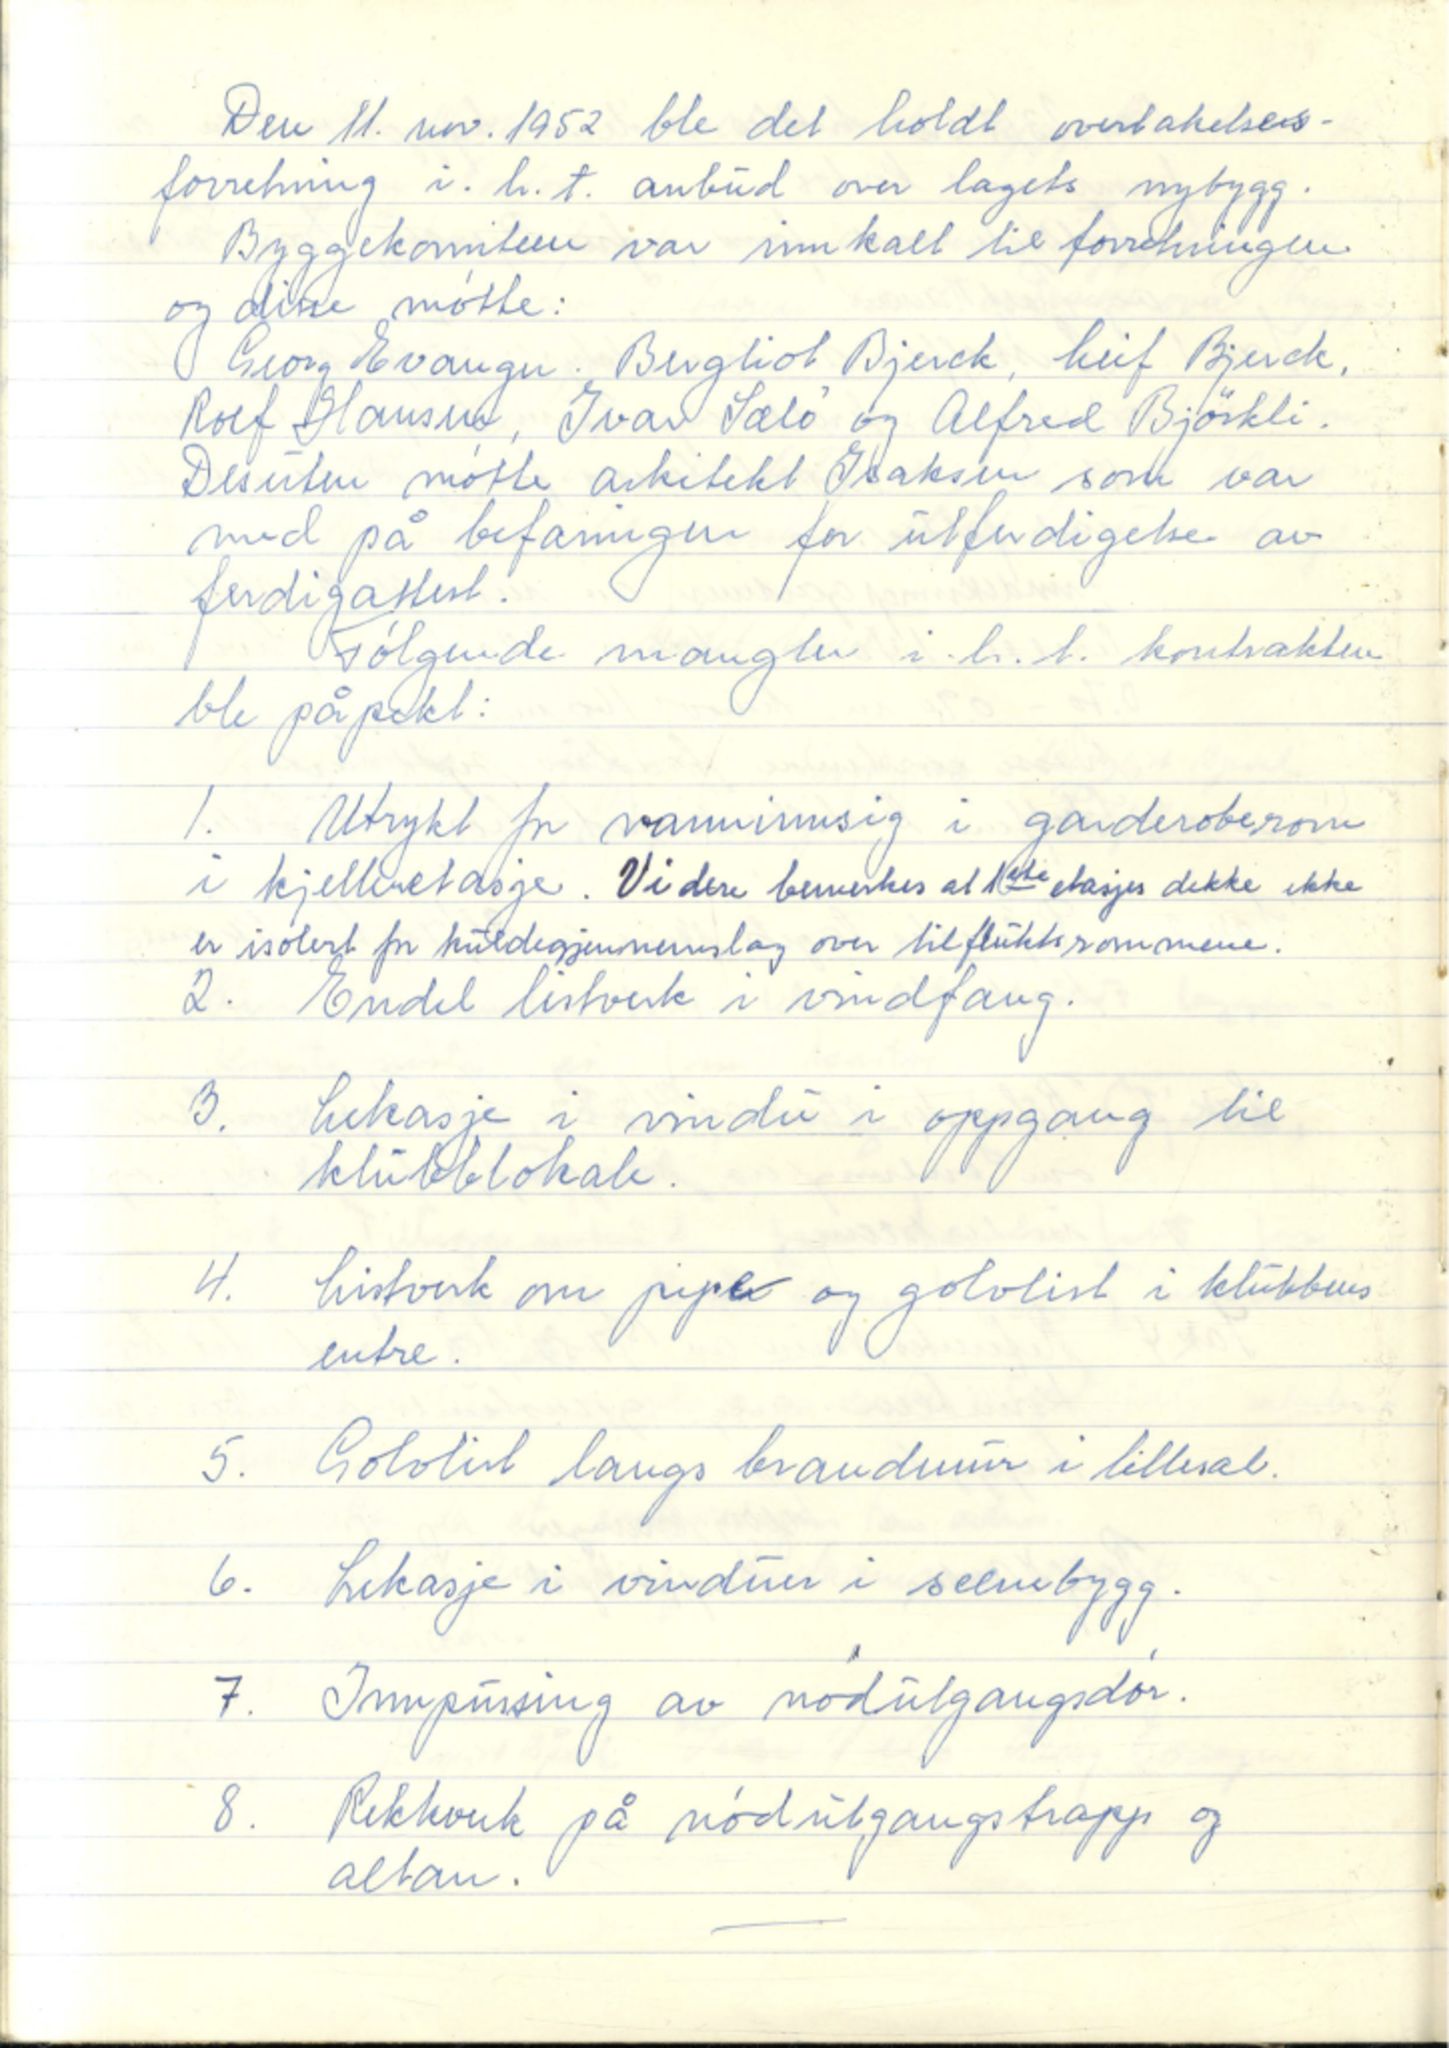 Den 11. nov. 1952 ble det holdt overtakelses-
forretning i. h. t. anbud over lagets nybygg.
Byggekomiteen var innkalt til forretningen
og disse møtte:
Georg Evanger. Bergliot Bjerck, Leif Bjerck,
Rolf Hansen, Ivar Sælø og Alfred Björkli.
Desuten møtte arkitekt Isaksen som var
med på befaringen for utferdigelse av
ferdigattest.
Følgende mangler i. h. t. kontrakten
ble påpekt:
1. Utrykt for vanninnsig i garderoberom
i kjelleretasje. Videre bemerkes at 1ste etasjes dekke ikke
er isolert for kuldegjennemslag over tilfluktsrommene.
2. Endel listverk i vindfang.
3. Lekasje i vindu i oppgang til
klubblokale.
4. Listverk om pipe og golvlist i klubbens
entre.
5. Golvlist langs brandmur i lillesal.
6. Lekasje i vinduer i scenebygg.
7. Innpussing av nødutgangsdør.
8. Rekkverk på nødutgangstrapp og
altan.